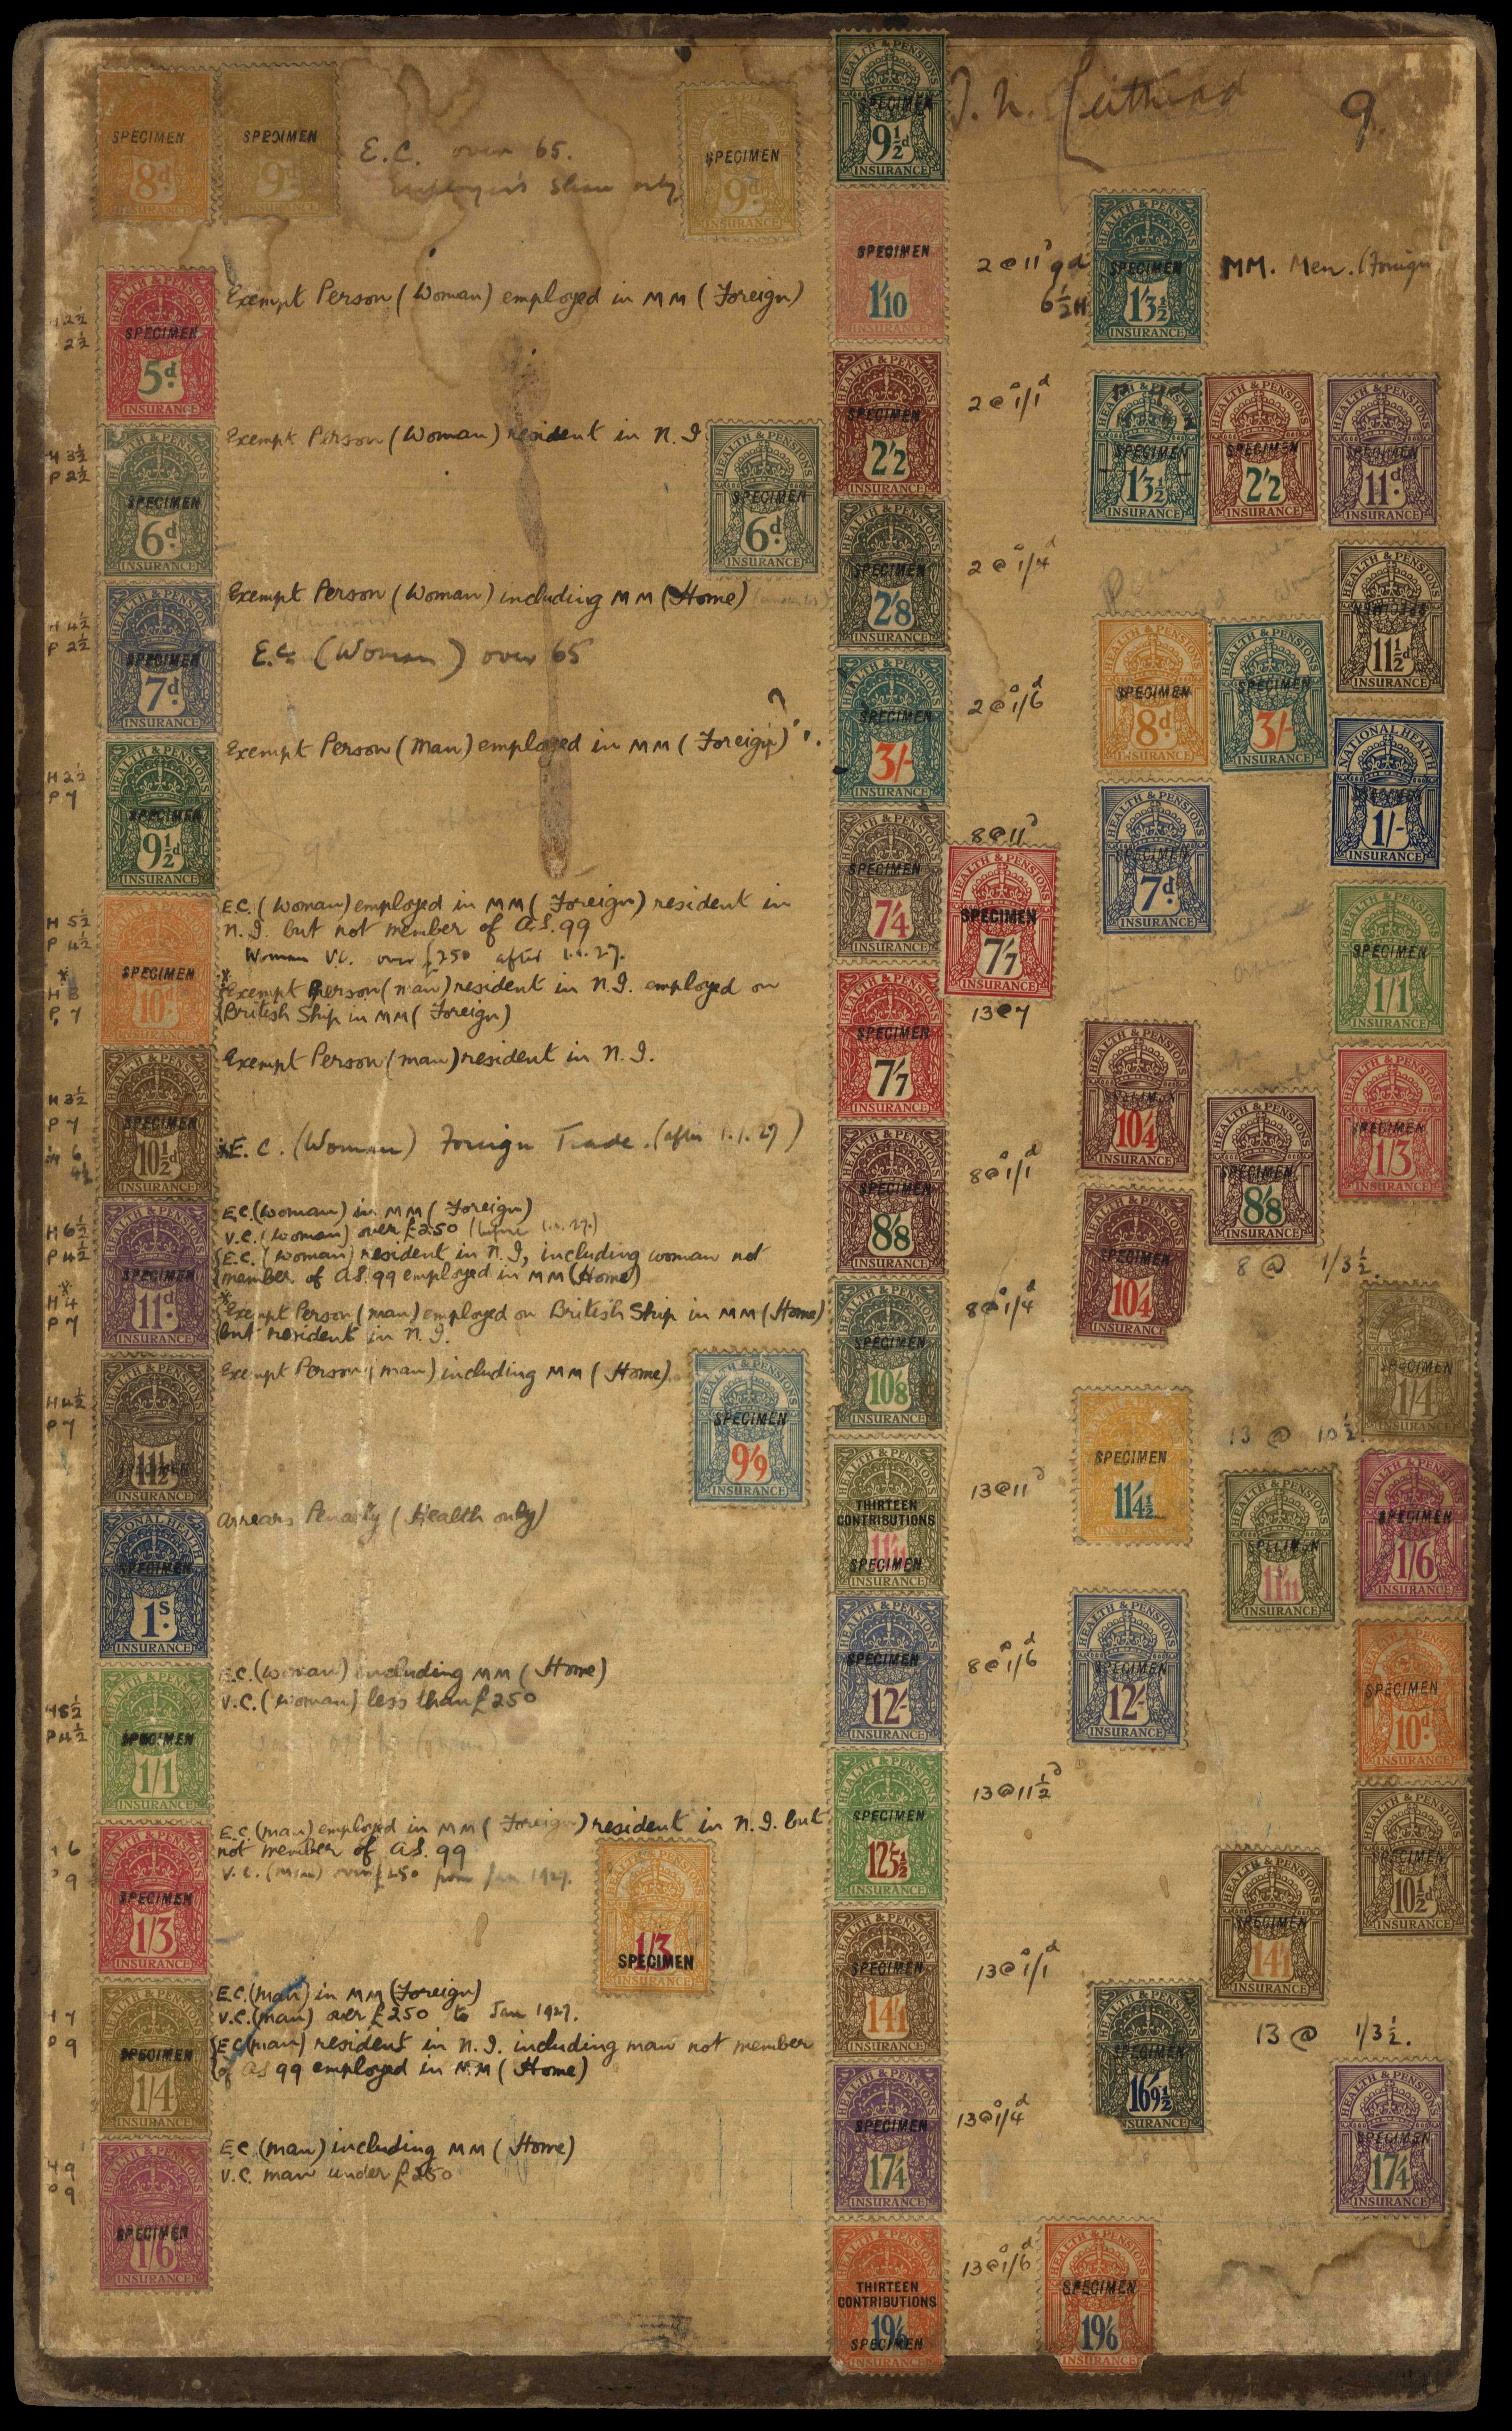 SPECIMEN 8d INSURANCE
SPECIMEN 9d INSURANCE
E.C. over 65.
Employer's Share only
SPECIMEN 9d INSURANCE
HEALTH & PENSIONS SPECIMEN 9½d INSURANCE
9.
HEALTH & PENSIONS SPECIMEN 5d. INSURANCE
Exempt Person (Woman) employed in MM (Foreign)
2½
2½
HEALTH & PENSIONS SPECIMEN 6d. INSURANCE
Exempt Person (Woman) resident in N.I
H 3½
P 2½
HEALTH & PENSIONS SPECIMEN 6d. INSURANCE
HEALTH & PENSIONS SPECIMEN 7d. INSURANCE
Exempt Person (Woman) including MM (Home)
E.C. (Woman) over 65
H 4½
P 2½
HEALTH & PENSIONS SPECIMEN 9½d INSURANCE
Exempt Person (Man) employed in MM (Foreign)
?
H 2½
P 7
SPECIMEN 10d. INSURANCE
E.C. (Woman) employed in MM (Foreign) resident in
N.I. but not member of A.S. 99
Woman V.C. over £250 after 1.1.27.
*Exempt Person (man) resident in N.I. employed on
British Ship in MM (Foreign)
H 5½
P 4½
*
H 3
P. 7
HEALTH & PENSIONS SPECIMEN 10½d INSURANCE
Exempt Person (man) resident in N.I.
*E.C. (Woman) Foreign Trade. (after 1.1.27)
H 3½
P 7
6
4½
HEALTH & PENSIONS SPECIMEN 11d. INSURANCE
E.C. (Woman) in MM (Foreign)
V.C. (Woman) over £250 (before 1.1.27)
E.C. (Woman) resident in N.I, including woman not
member of A.S. 99 employed in MM (Home)
*Exempt Person (man) employed on British Ship in MM (Home)
but resident in N.I.
H 6½
P 4½
*
H 4
P 7
HEALTH & PENSIONS SPECIMEN 11½ INSURANCE
Exempt Person (man) including MM (Home)
H 4½
P 7
HEALTH & PENSIONS SPECIMEN 9/9 INSURANCE
NATIONAL HEALTH SPECIMEN 1s. INSURANCE
Arrears Penalty (Health only)
HEALTH & PENSIONS SPECIMEN 1/1 INSURANCE
E.C. (Woman) including MM (Home)
V.C. (Woman) less than £250
H 8½
P 4½
HEALTH & PENSIONS SPECIMEN 1/3 INSURANCE
E.C. (man) employed in MM (Foreign) resident in N.I. but
not member of A.S. 99
V.C. (Man) over £250 from Jan 1927.
6
9
1/3 SPECIMEN INSURANCE
HEALTH & PENSIONS SPECIMEN 1/4 INSURANCE
E.C. (man) in MM (Foreign)
V.C. (man) over £250 to Jan 1927.
E.C (man) resident in N.I. including man not member
of AS 99 employed in MM (Home)
H 7
P 9
HEALTH & PENSIONS SPECIMEN 1/6 INSURANCE
E.C. (man) including MM (Home)
V.C. man under £250
H 9
P 9
SPECIMEN 1/10 INSURANCE
2@11d
9d
6½H
HEALTH & PENSIONS SPECIMEN 1/3½ INSURANCE
MM. Men. (Foreign
HEALTH & PENSIONS SPECIMEN 2/2 INSURANCE
2@1/1d
HEALTH & PENSIONS SPECIMEN 1/3½ INSURANCE
HEALTH & PENSIONS SPECIMEN 2/2 INSURANCE
HEALTH & PENSIONS SPECIMEN 11d. INSURANCE
HEALTH & PENSIONS SPECIMEN 2/8 INSURANCE
2@1/4d
HEALTH & PENSIONS SPECIMEN 11½d INSURANCE
HEALTH & PENSIONS SPECIMEN 3/- INSURANCE
2@1/6d
HEALTH & PENSIONS SPECIMEN 8d INSURANCE
HEALTH & PENSIONS SPECIMEN 3/- INSURANCE
NATIONAL HEALTH SPECIMEN 1/- INSURANCE
HEALTH & PENSIONS SPECIMEN 7/4 INSURANCE
8@11d
HEALTH & PENSIONS SPECIMEN 7/7 INSURANCE
HEALTH & PENSIONS SPECIMEN 7d. INSURANCE
HEALTH & PENSIONS SPECIMEN 1/1 INSURANCE
HEALTH & PENSIONS SPECIMEN 7/7 INSURANCE
13@7
HEALTH & PENSIONS SPECIMEN 10/4 INSURANCE
HEALTH & PENSIONS SPECIMEN 8/8 INSURANCE
HEALTH & PENSIONS SPECIMEN 1/3 INSURANCE
HEALTH & PENSIONS SPECIMEN 8/8 INSURANCE
8@1/1d
HEALTH & PENSIONS SPECIMEN 10/4 INSURANCE
8 @ 1/3½.
HEALTH & PENSIONS SPECIMEN 10/8 INSURANCE
8@1/4d
SPECIMEN 1/4 INSURANCE
HEALTH & PENSIONS THIRTEEN CONTRIBUTIONS 11/11 SPECIMEN INSURANCE
13@11d
SPECIMEN 11/4½ INSURANCE
13 @ 10½.
HEALTH & PENSIONS SPECIMEN 11/11 INSURANCE
HEALTH & PENSIONS SPECIMEN 1/6 INSURANCE
HEALTH & PENSIONS SPECIMEN 12/- INSURANCE
8@1/6d
HEALTH & PENSIONS SPECIMEN 12/- INSURANCE
HEALTH & PENSIONS SPECIMEN 10d. INSURANCE
HEALTH & PENSIONS SPECIMEN 12/5½ INSURANCE
13@11½d
HEALTH & PENSIONS SPECIMEN 10½d INSURANCE
HEALTH & PENSIONS SPECIMEN 14/1 INSURANCE
13@1/1d
HEALTH & PENSIONS SPECIMEN 14/1 INSURANCE
HEALTH & PENSIONS SPECIMEN 16/9½ INSURANCE
13 @ 1/3½.
HEALTH & PENSIONS SPECIMEN 17/4 INSURANCE
13@1/4d
HEALTH & PENSIONS SPECIMEN 17/4 INSURANCE
HEALTH & PENSIONS THIRTEEN CONTRIBUTIONS 19/6 SPECIMEN INSURANCE
13@1/6d
HEALTH & PENSIONS SPECIMEN 19/6 INSURANCE